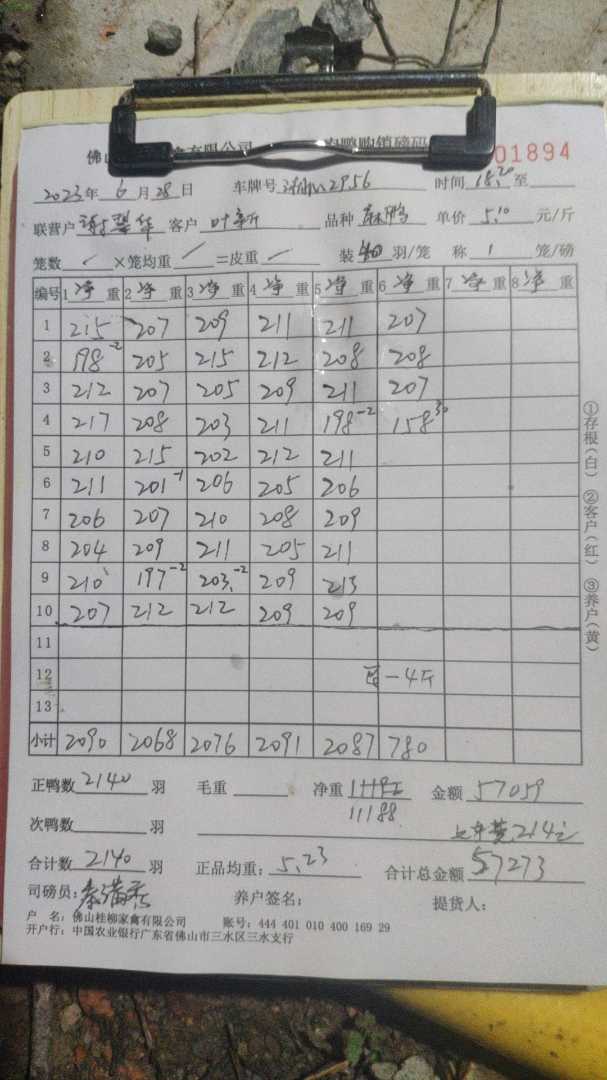 佛山 禽有限公司 鸭购销磅码 01894
2023年 6 月 28 日 车牌号 2956 时间 18.20 至
联营户 华 客户 叶新 品种 麻鸭 单价 5.10 元/斤
笼数 ✓ ×笼均重 =皮重 装 40 羽/笼 称 1 笼/磅
编号 1净重 2净重 3净重 4净重 5净重 6净重 7净重 8净重
1 215 207 209 211 211 207
2 198-2 205 215 212 208 208
3 212 207 205 209 211 207
4 217 208 203 211 198-2 158 30
5 210 215 202 212 211
6 211 201-1 206 205 206
7 206 207 210 208 209
8 204 209 211 205 211
9 210 197-2 203.-2 209 213
10 207 212 212 209 209
11
12 -4斤
13
小计 2090 2068 2076 2091 2087 780
正鸭数 2140 羽 毛重 净重 金额 57059
11188
次鸭数 羽 214元
合计数 2140 羽 正品均重: 5.23 合计总金额 57273
司磅员: 秦满 养户签名: 提货人:
户 名: 佛山桂柳家禽有限公司 账号: 444 401 010 400 169 29
开户行: 中国农业银行广东省佛山市三水区三水支行
①存根(白) ②客户(红) ③养户(黄)